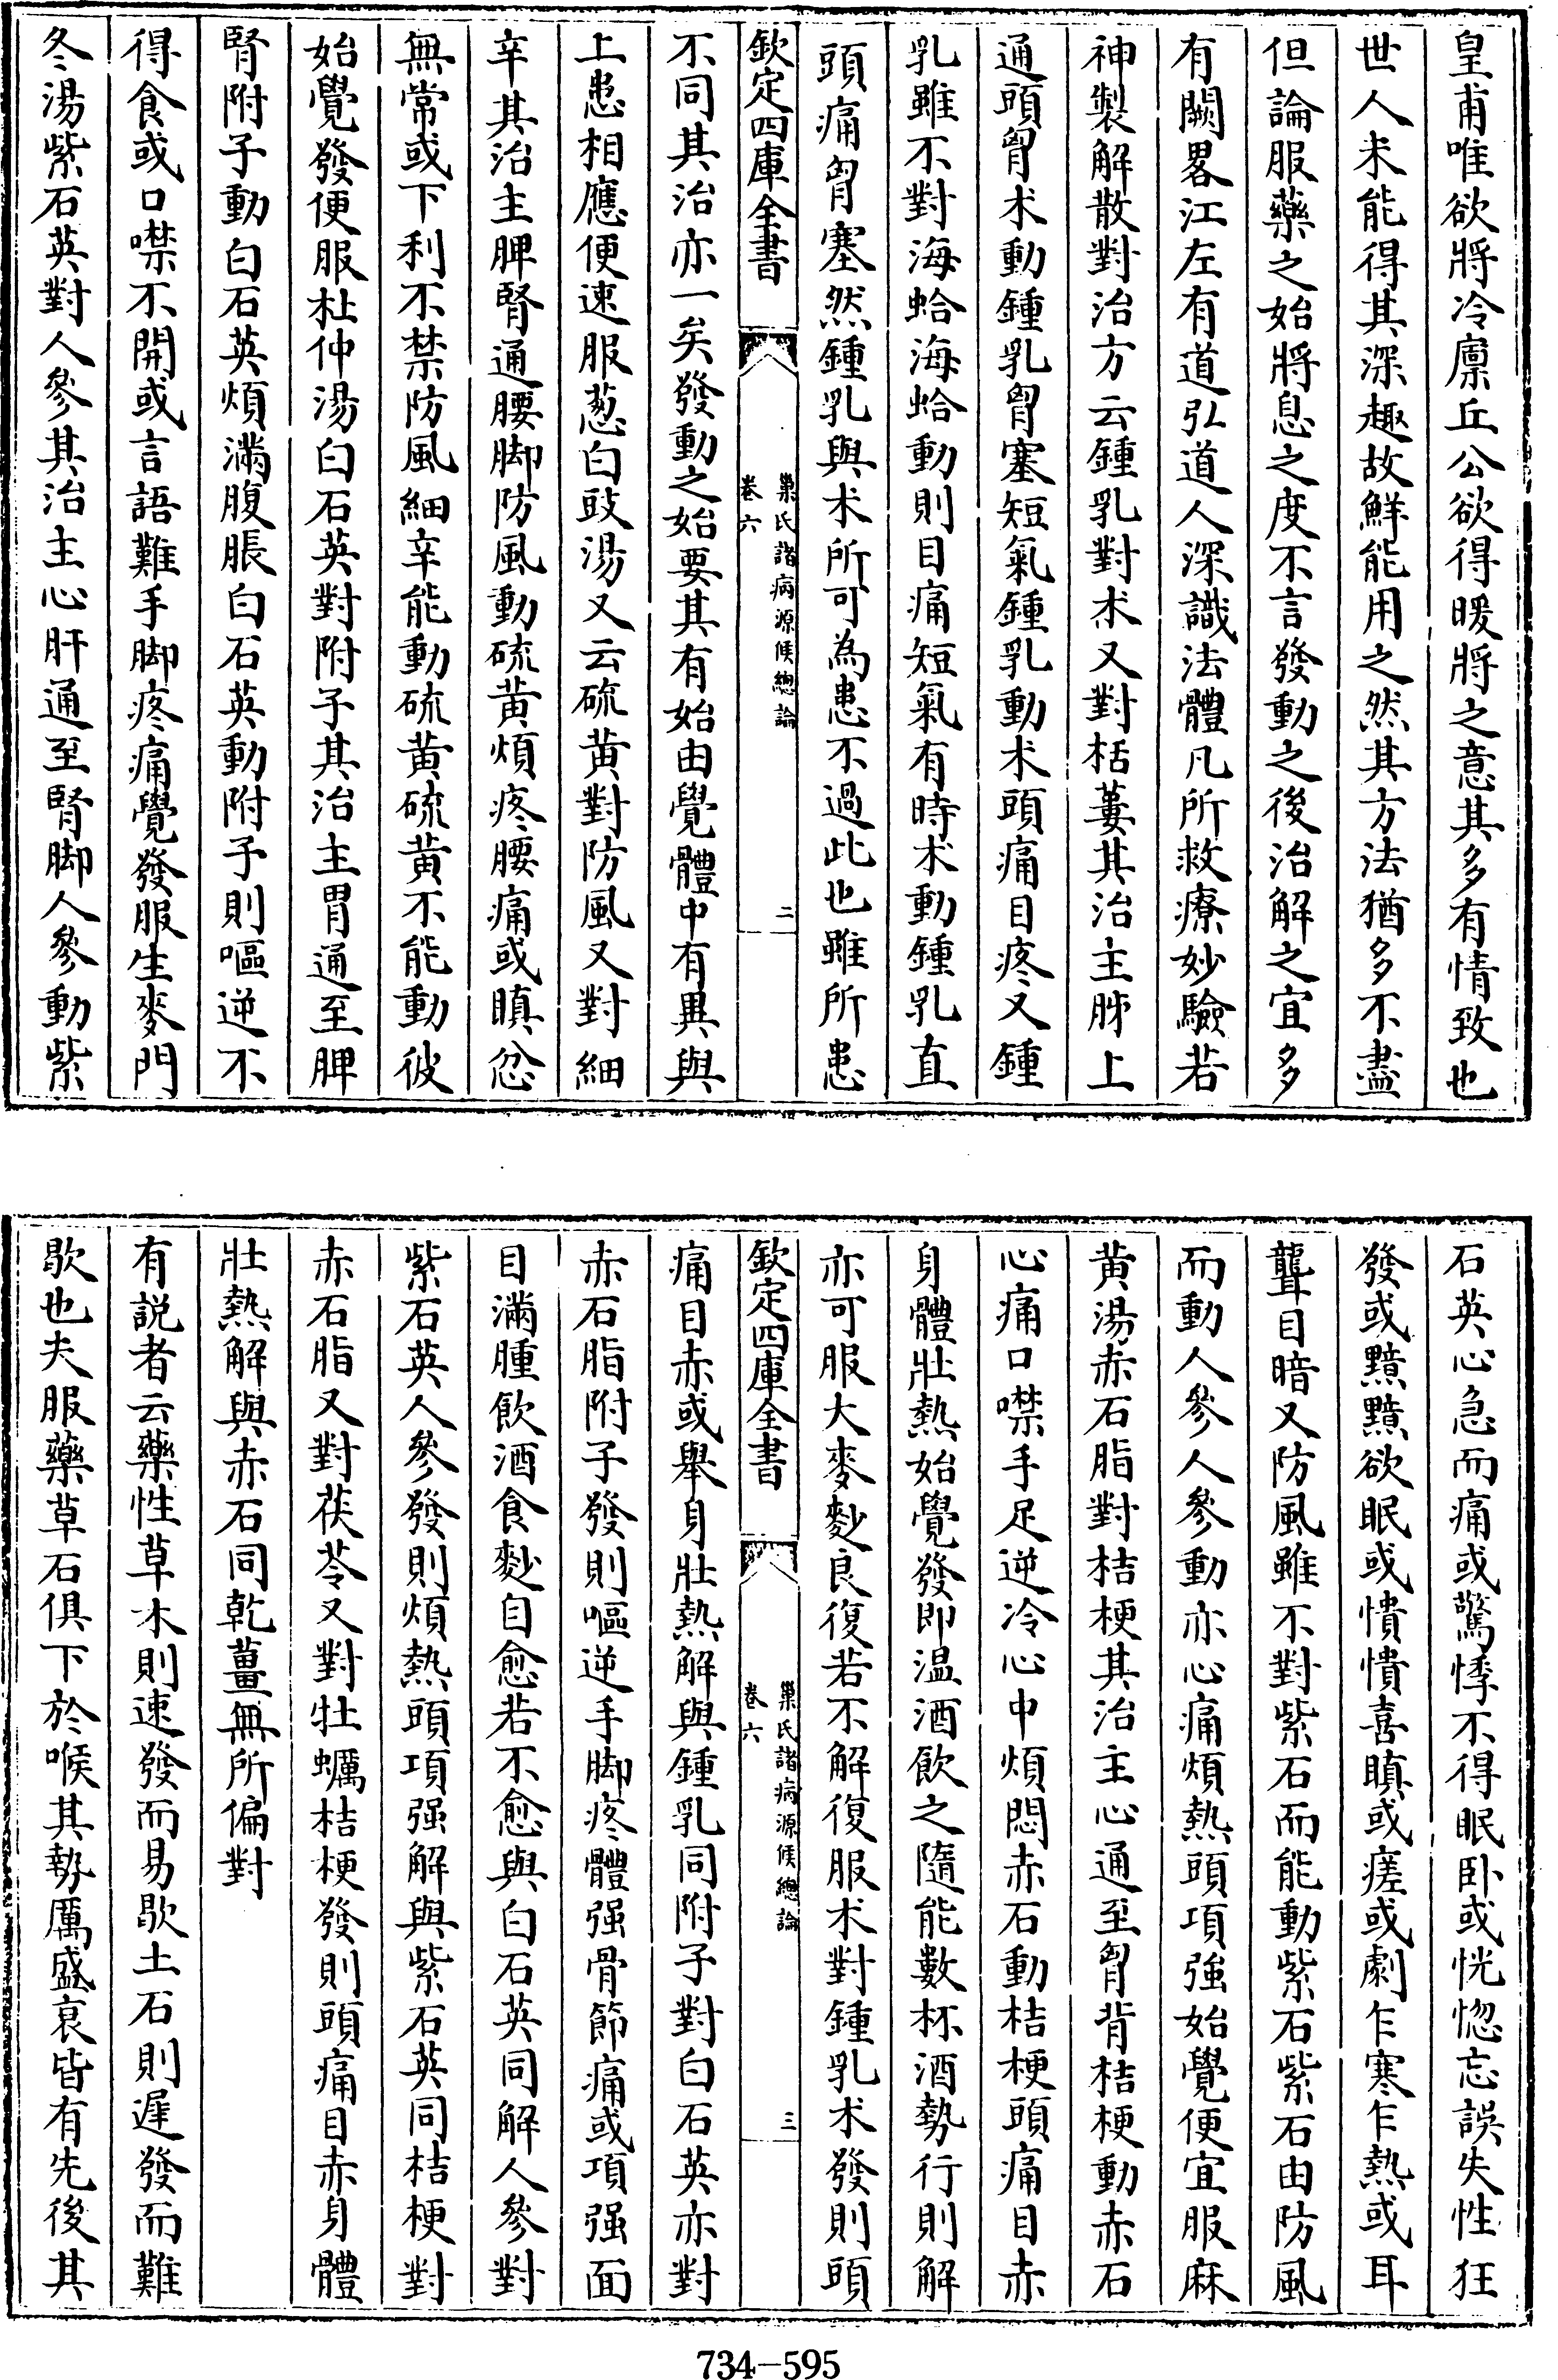 皇甫唯欲將冷廪丘公欲得暖將之意其多有情致也
世人未能得其深趣故鮮能用之然其方法猶多不盡
但論服藥之始將息之度不言發動之後治解之宜多
有闕畧江左有道弘道人深識法體凡所救療妙驗若
神製解散對治方云鍾乳對术又對栝蔞其治主肺上
通頭胷术動鍾乳胷塞短氣鍾乳動术頭痛目疼又鍾
乳雖不對海蛤海蛤動則目痛短氣有時术動鍾乳直
頭痛胷塞然鍾乳與术所可為患不過此也雖所患
欽定四庫全書
巢氏諸病源候總論
卷六
二
不同其治亦一矣發動之始要其有始由覺體中有異與
上患相應便速服葱白豉湯又云硫黄對防風又對細
辛其治主脾腎通腰脚防風動硫黄煩疼腰痛或瞋忿
無常或下利不禁防風細辛能動硫黄硫黄不能動彼
始覺發便服杜仲湯白石英對附子其治主胃通至脾
腎附子動白石英煩滿腹脹白石英動附子則嘔逆不
得食或口噤不開或言語難手脚疼痛覺發服生麥門
冬湯紫石英對人參其治主心肝通至腎脚人參動紫
石英心急而痛或驚悸不得眠卧或恍惚忘誤失性狂
發或黯黯欲眠或憒憒喜瞋或瘥或劇乍寒乍熱或耳
聾目暗又防風雖不對紫石而能動紫石紫石由防風
而動人參人參動亦心痛煩熱頭項強始覺便宜服麻
黄湯赤石脂對桔梗其治主心通至胷背桔梗動赤石
心痛口噤手足逆冷心中煩悶赤石動桔梗頭痛目赤
身體壯熱始覺發即温酒飲之隨能數杯酒勢行則解
亦可服大麥麨良復若不解復服术對鍾乳术發則頭
欽定四庫全書
巢氏諸病源候總論
卷六
三
痛目赤或舉身壯熱解與鍾乳同附子對白石英亦對
赤石脂附子發則嘔逆手脚疼體强骨節痛或項强面
目滿腫飲酒食麨自愈若不愈與白石英同解人參對
紫石英人參發則煩熱頭項强解與紫石英同桔梗對
赤石脂又對茯苓又對牡蠣桔梗發則頭痛目赤身體
壯熱解與赤石同乾薑無所偏對
有説者云藥性草木則速發而易歇土石則遲發而難
歇也夫服藥草石俱下於喉其勢厲盛衰皆有先後其
734-595